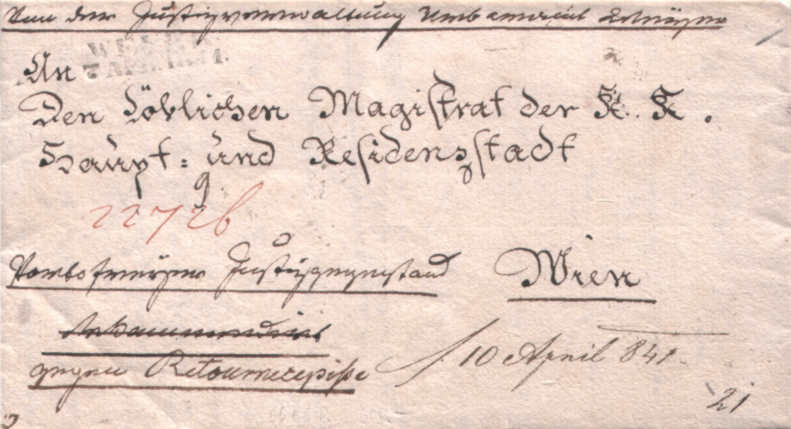 Von der Justizverwaltung
WELS
7 APRIL
An
Den Löblichen Magistrat der K. K.
Haupt= und Residenzstadt
22726
Portofreyer Justizgegenstand
Wien
gegen Retourrecepisse
10 April 841
21